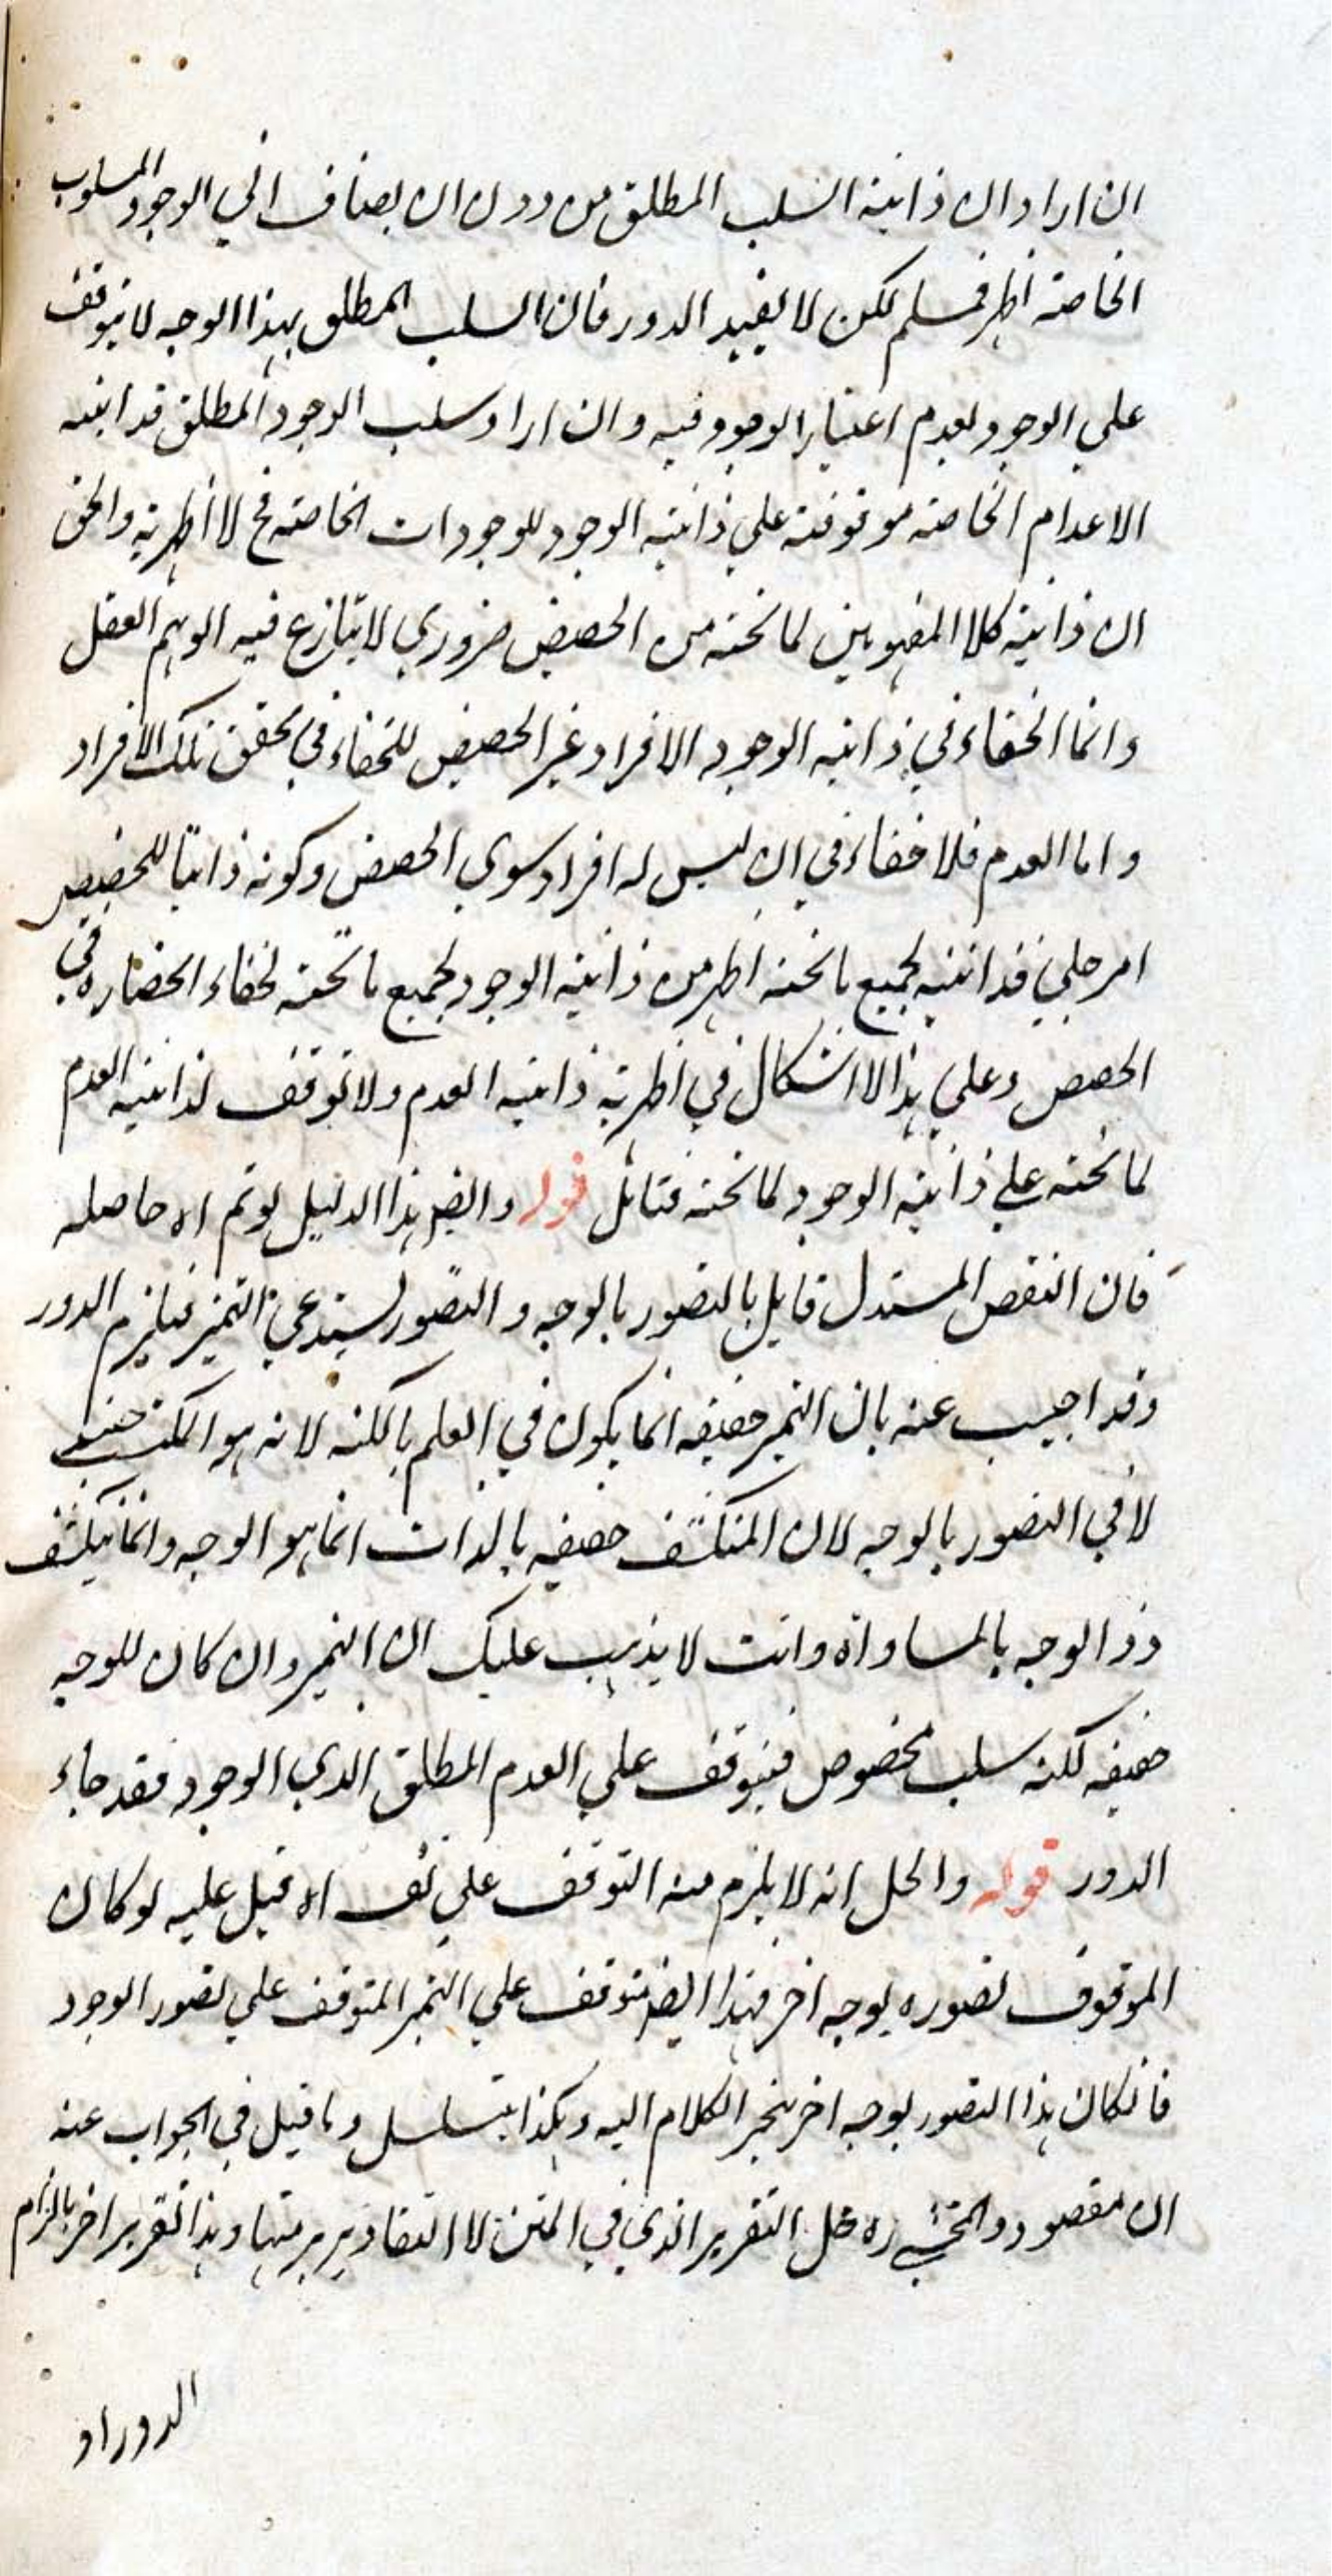 ان اراد ان ذاتية السلب المطلق من دون ان يضاف الي الوجود المسلوب
الخاصة اظهر فمسلم لكن لا يفيد الدور فان السلب المطلق بهذا الوجه لا يتوقف
علي الوجود لعدم اعتبار الوجود فيه وان اراد سلب الوجود المطلق فذاتيته
الاعدام الخاصة موقوفة علي ذاتية الوجود للوجودات الخاصة فح لا اظهرية والحق
ان ذاتية كلا المفهومين لما تحته من الحصص ضروري لا يتنازع فيه الوهم العقل
وانما الخفاء في ذاتية الوجود الافراد غير الحصص للخفاء في تحقق تلك الافراد
واما العدم فلا خفاء في ان ليس له افراد سوي الحصص وكونه ذاتيا للحصص
امر جلي فذاتيته لجميع ما تحته اظهر من ذاتية الوجود لجميع ما تحته لخفاء انحصاره في
الحصص وعلي هذا لا اشكال في اظهرية ذاتية العدم ولا توقف لذاتية العدم
لما تحته علي ذاتية الوجود لما تحته فتأمل قوله وايضر هذا الدليل لو تم اه حاصله
فان النقص المستدل قايل بالتصور بالوجه و التصور يستدعي التميز فيلزم الدور
وقد اجيب عنه بان التميز حقيقه انما يكون في العلم بالكنه لانه هو الكنه حينئذ
لا في التصور بالوجه لان المنكشف حقيقه بالذات انما هو الوجه وانما ينكشف
ذو الوجه بالمساواة وانت لا يذهب عليك ان التميز وان كان للوجه
حقيقه لكنه سلب مخصوص فيتوقف علي العدم المطلق الذي الوجود فقد جاء
الدور قوله والحل انه لا يلزم منه التوقف علي نف اه قيل عليه لو كان
الموقوف تصوره بوجه اخر فهذا ايضر متوقف علي التميز المتوقف علي تصور الوجود
فانكان هذا التصور بوجه اخر ينجر الكلام اليه وهكذا يتسلسل وما قيل في الجواب عنه
ان مقصود المحشي ره حل التقرير الذي في المتن لا التقادير برمتها وهذا تقرير اخر بالزام
الدور او